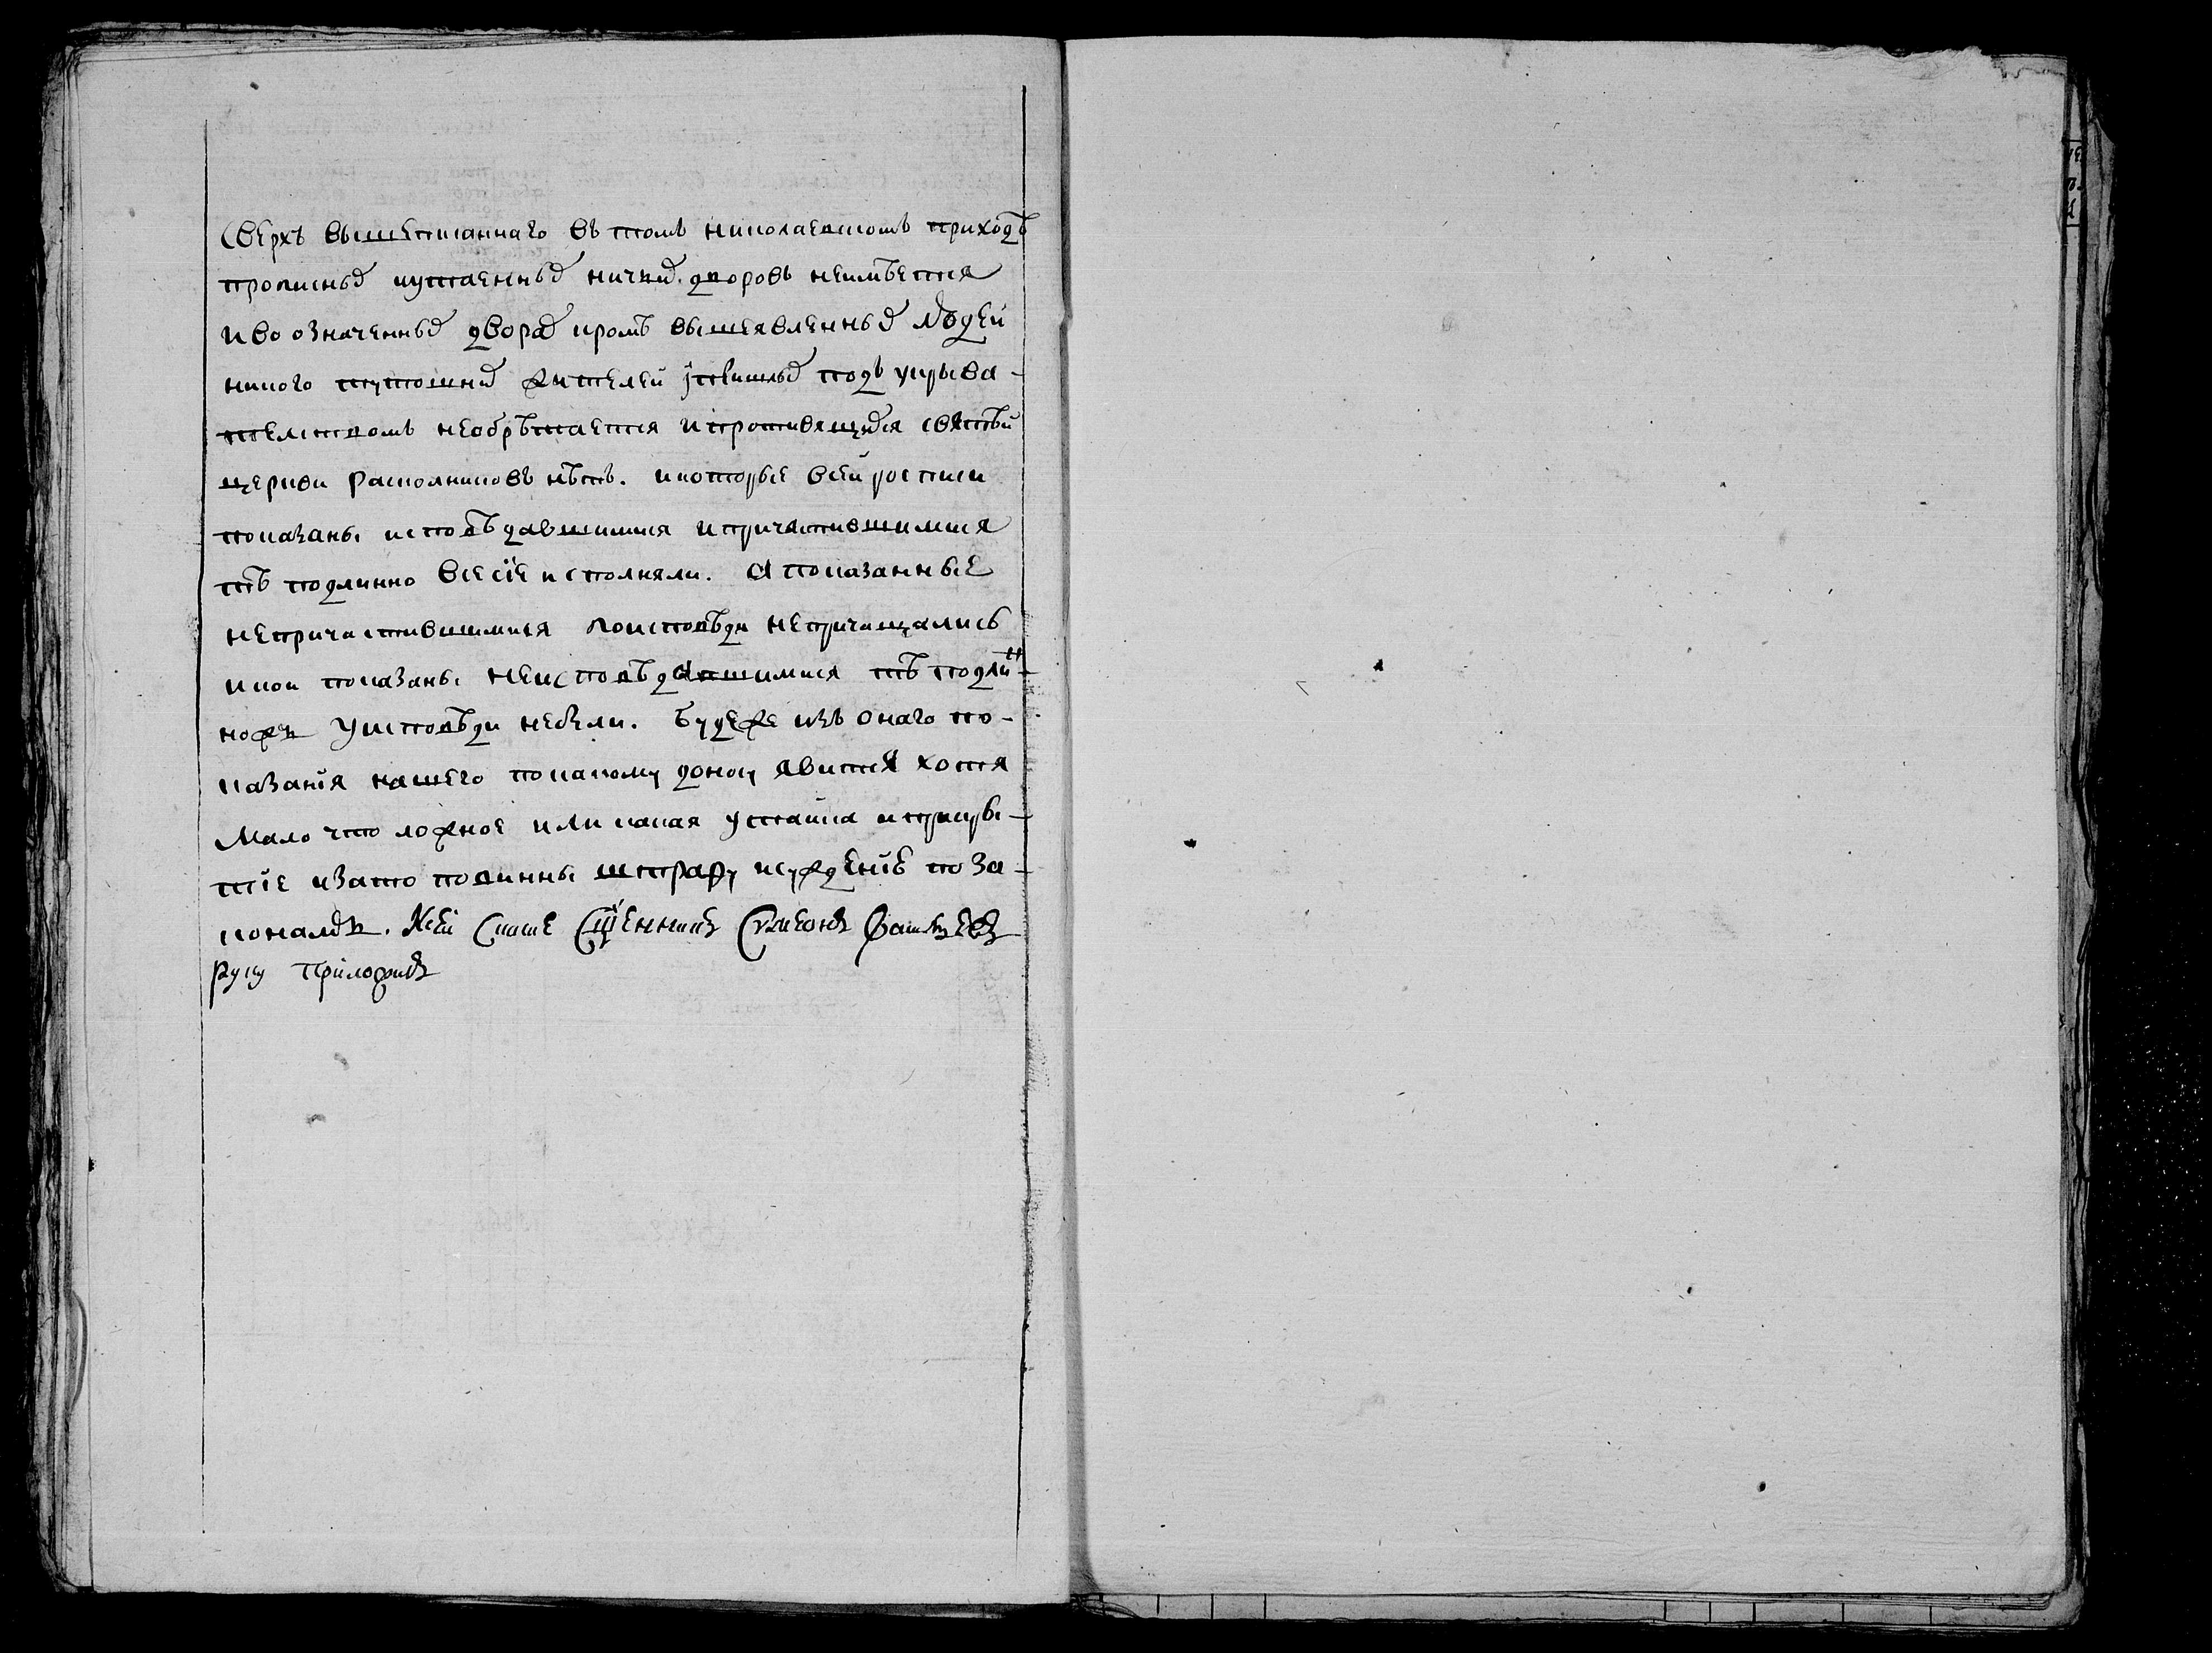 Сверхъ вышеписаннаго въ томъ николаевскомъ приходѣ
прописныхъ иутаенныхъ ничьихъ дворовъ неимѣется
иво означенныхъ дворахъ кромѣ вышеявленныхъ людей
никого тутошнихъ жителей подъ укрыва-
телствомъ необрѣтается ипротивящихся святѣй
церкви расколниковъ нѣтъ. икоторые всей росписи
показаны исповѣдавшимися ипричастившимися
тѣ подлинно всеcїе исполняли. А показанные
непричастившимися поисповѣди непричащались
икои показаны неисповѣдавшимися тѣ подлин-
ножъ уисповѣди небыли. Будеже изъ онаго по-
казанїя нашего покакому доносу явится хотя
мало что ложное или какая утайка иприкры-
тїе изато повинны штрафу исужденїю по за-
кономъ. Ксей сказке Сщенникъ Сѵмеонъ
руку приложилъ